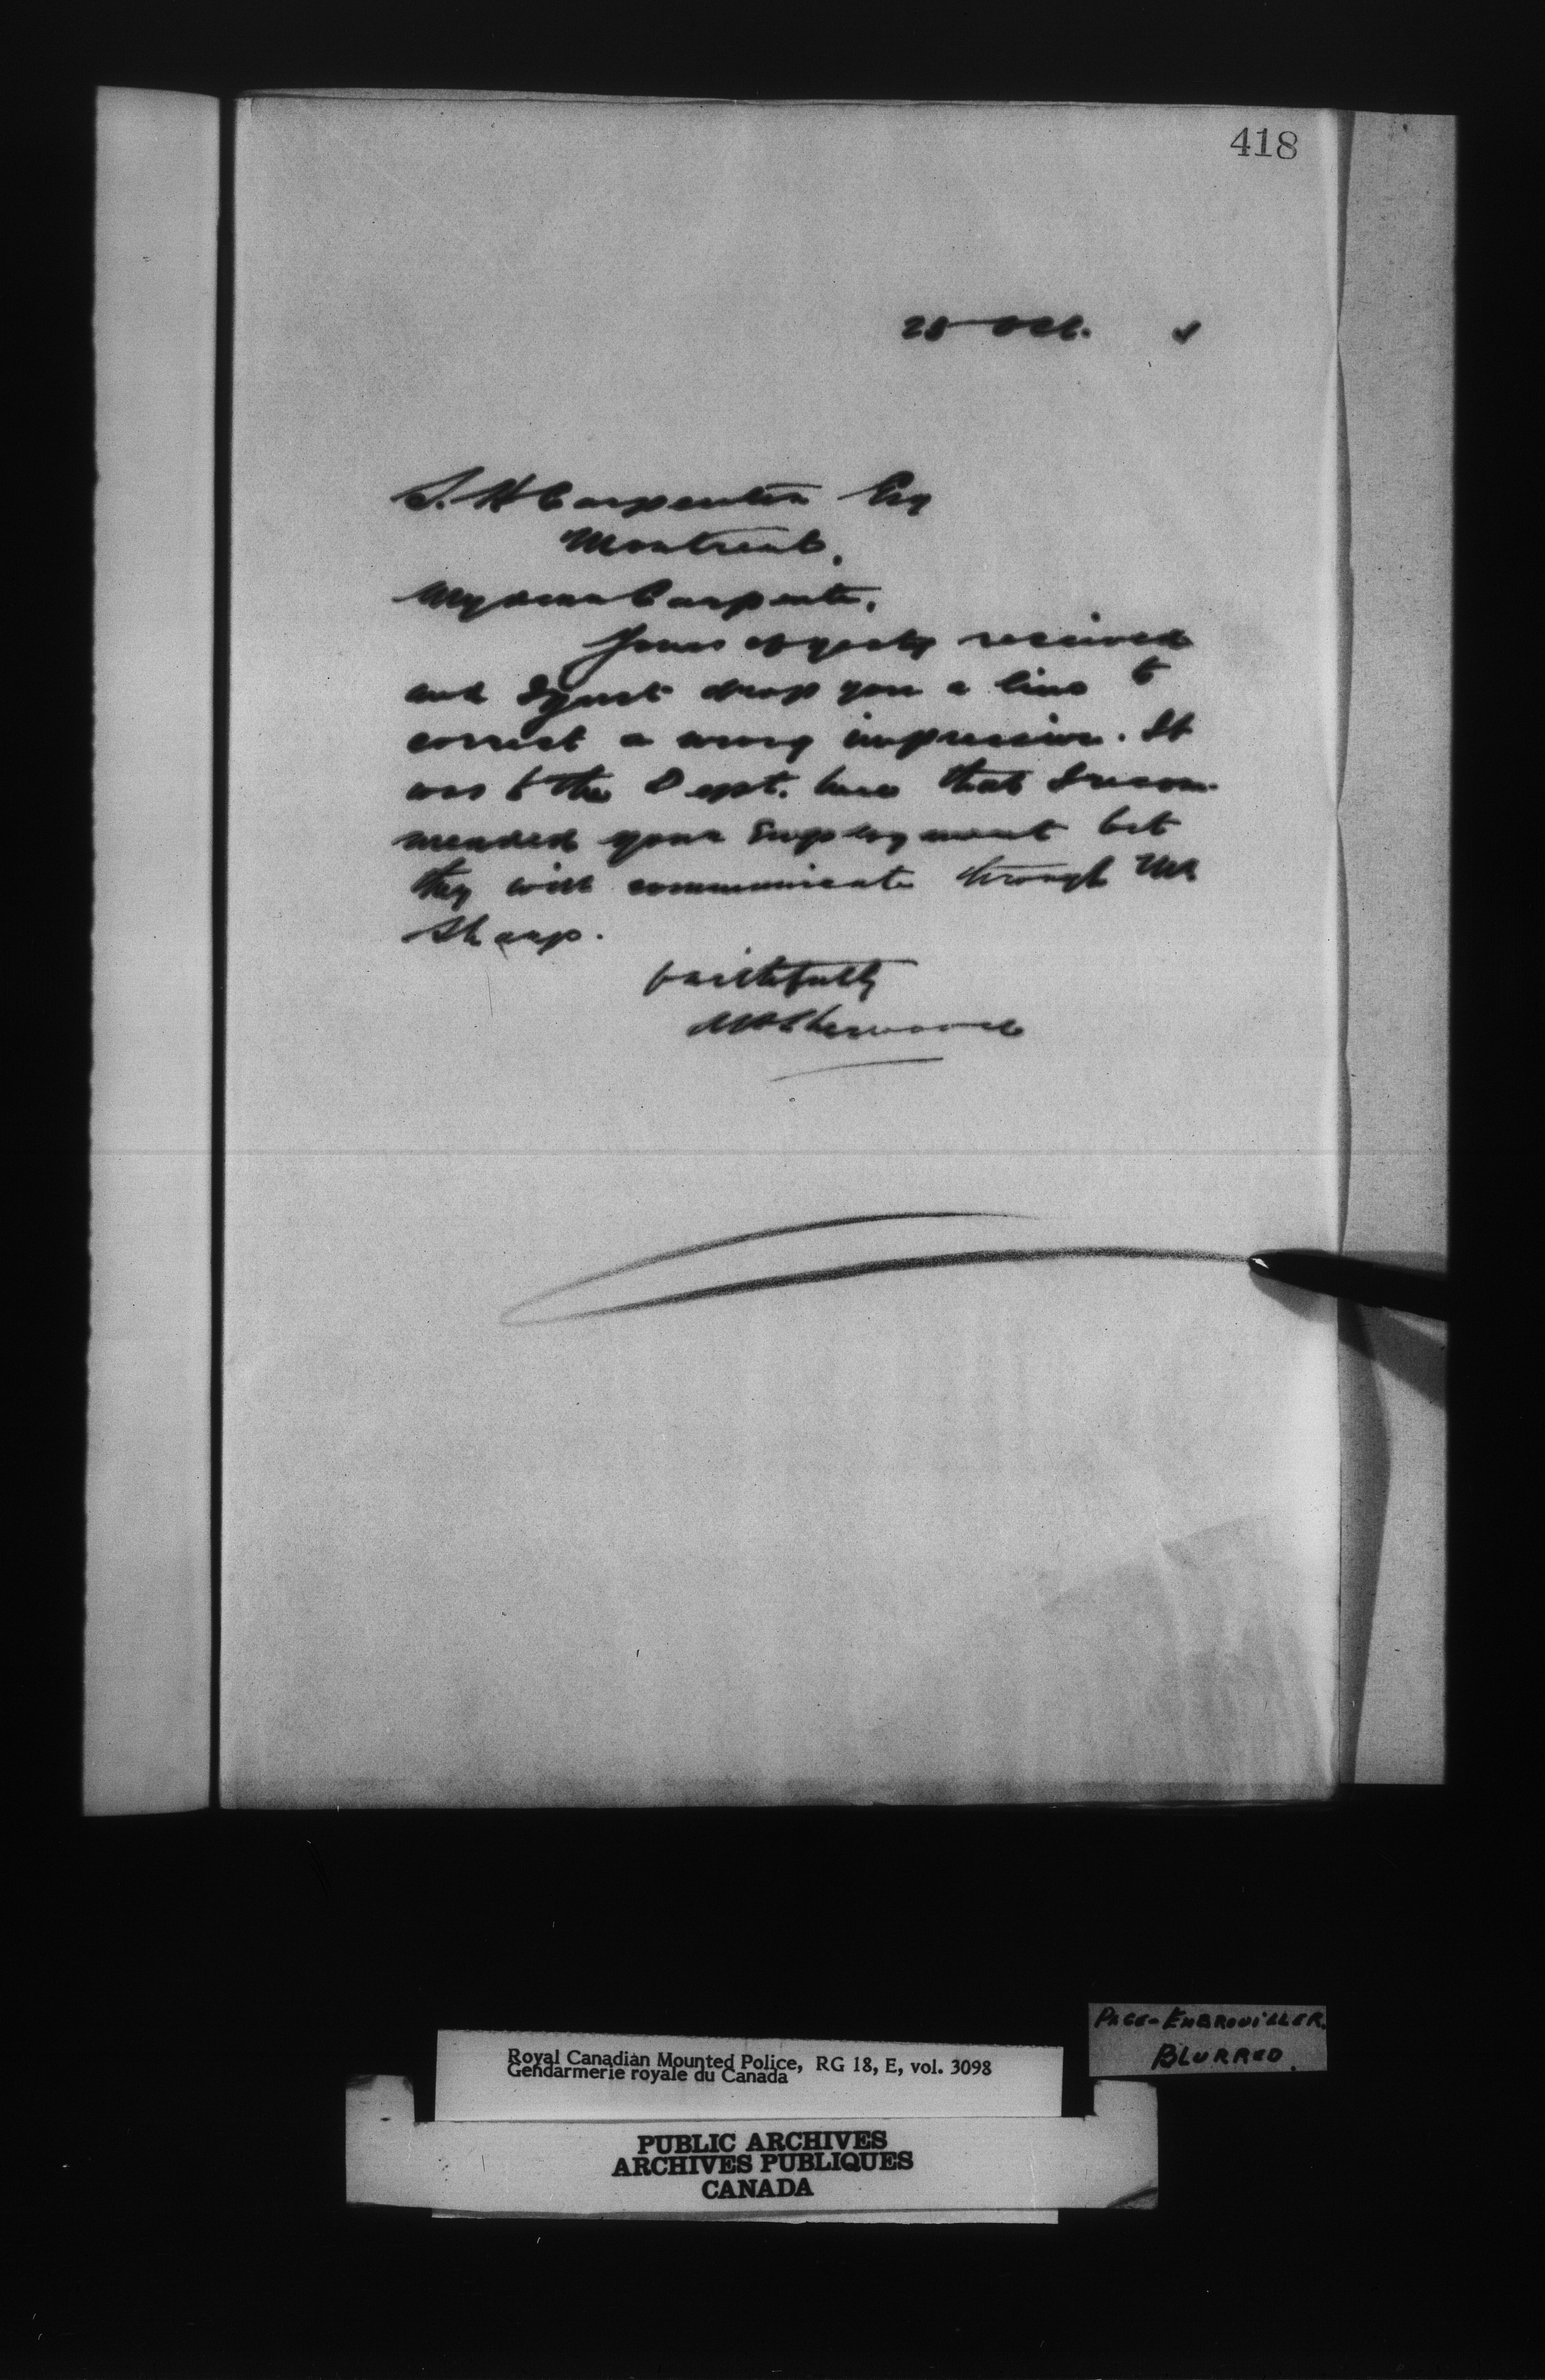 418
28 Oct.
S. H Carpenter Esq
Montreal.
My dear Carpenter,
Yours of yesty received
and I just drop you a line to
correct a wrong impression. It
was to the Dept. here that I recom-
mended your Employment but
they will communicate through Mr
Sharp.
faithfully
APSherwood
PAGE-EMBROUILLER.
BLURRED.
Royal Canadian Mounted Police, RG 18, E, vol. 3098
Gendarmerie royale du Canada
PUBLIC ARCHIVES
ARCHIVES PUBLIQUES
CANADA